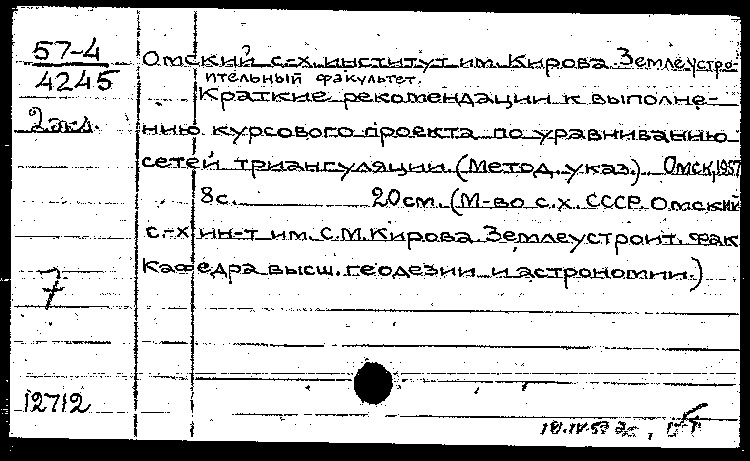 57-4
4245
2 экз.
Омский с-х. институт им. Кирова. Землеустро-
ительный факультет.
Краткие рекомендации к выполне-
нию курсового проекта по уравниванию
сетей триангуляции. (Метод. указ.). Омск, 1957
8с. 20см. (М-во с.х. СССР. Омский
с.-х ин-т им. С.М. Кирова. Землеустроит. фак
Кафедра высш. геодезии и астрономии.)
7
12712
18.IV-57